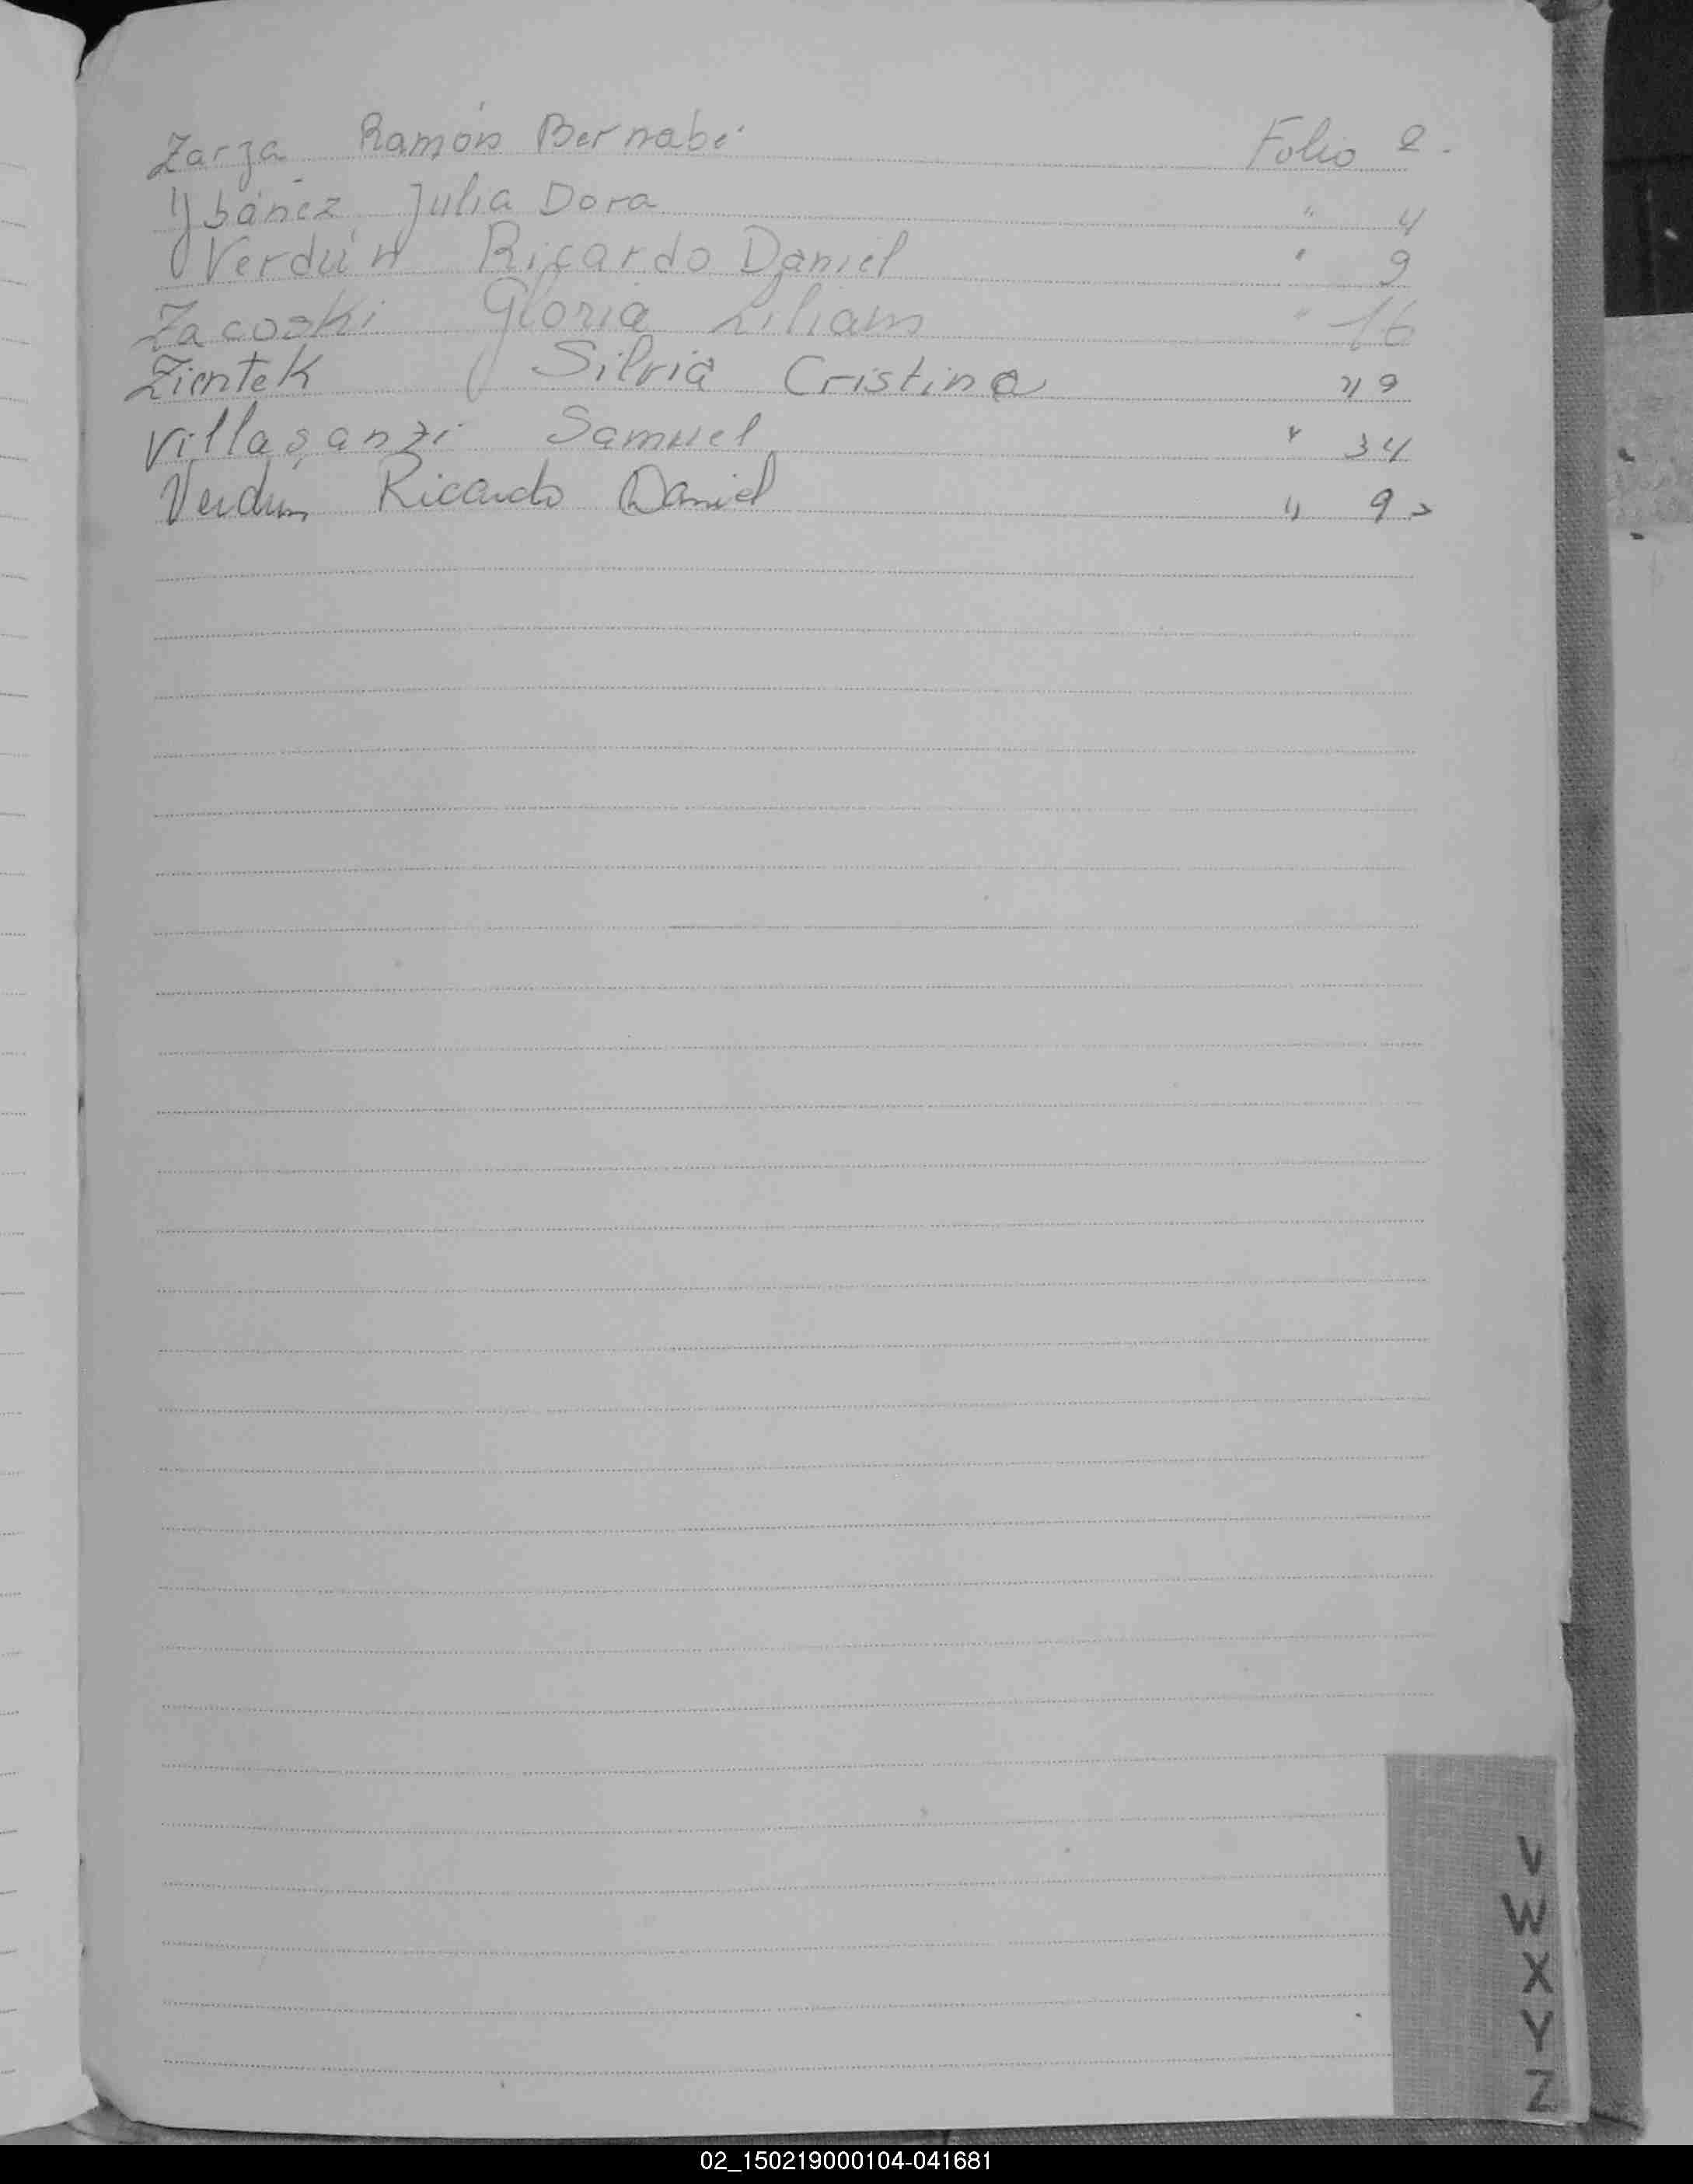 Zarza Ramón Bernabé Folio 2.
Ybánez Julia Dora " 4
Verdún Ricardo Daniel " 9
Zacoski Gloria Liliam " 16
Zientek Silvia Cristina " 19
Samuel " 34
Verdun Ricardo Daniel " 9
V
W
X
Y
Z
02_150219000104-041681